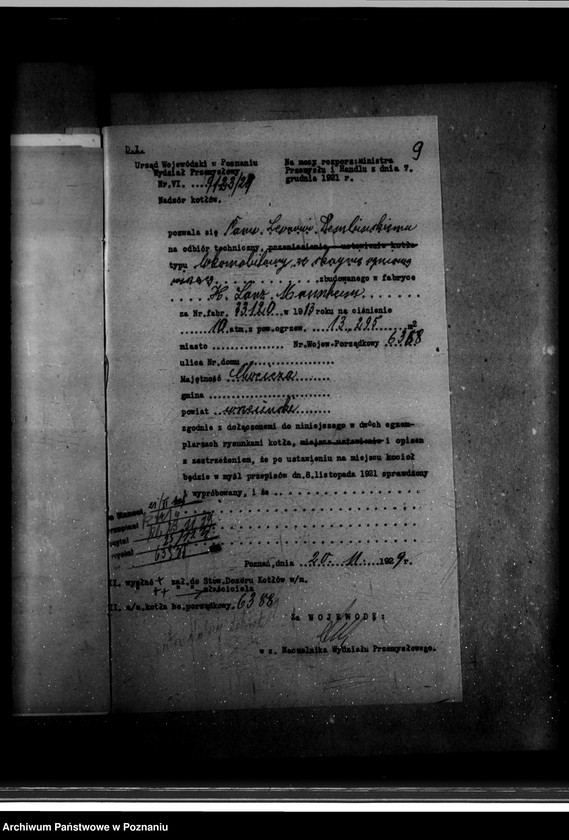 D.Z.
9
Urząd Wojewódzki w Poznaniu
Wydział Przemysłowy
Nr.VI. ...9123/29
Nadzór kotłów.
Na mocy rozporz:Ministra
Przemysłu i Handlu z dnia 7.
grudnia 1921 r.
pozwala się Panu
na odbiór techniczny, przeniesienie - ustawienie kotła
typu lokomobilowy ze
zbudowanego w fabryce
H. Lanz. Mannheim
za Nr.fabr. 33120 w 1913 roku na ciśnienie
10 atm.z pow.ogrzew. 13.295 m2
miasto Nr.Wojew-Porządkowy 6388
ulica Nr.domu
Majętność Chocicza
gmina
powiat
zgodnie z dołączonemi do niniejszego w dwóch egzem-
plarzach rysunkami kotła, miejsca ustawienia i opisem
z zastrzeżeniem, że po ustawieniu na miejscu kocioł
będzie w myśl przepisów dn.8.listopada 1921 sprawdzony
i wypróbowany, i że
Poznań,dnia 20. 11. 1929 r.
II. wypłać + zał.do Stow.Dozoru Kotłów w/m.
++ " właściciela
II. a/a.kotła No.porządkowy. 6388
Za WOJEWODĘ:
w z. Naczelnika Wydziału Przemysłowego.
Archiwum Państwowe w Poznaniu